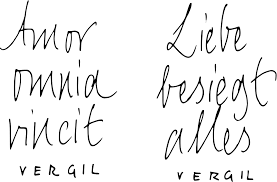 Amor
omnia
vincit
VERGIL
Liebe
besiegt
alles
VERGIL